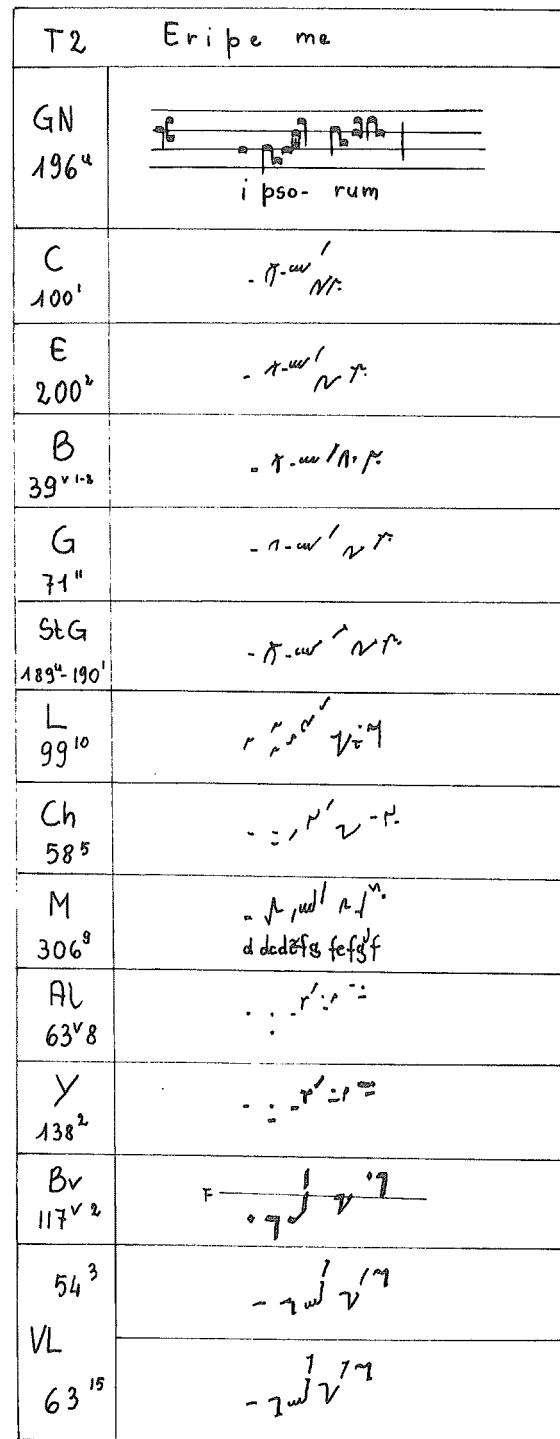 T2 Eripe me
GN
196⁴
i pso- rum
C
100¹
E
200²
B
39ᵛ ¹⁻²
G
71¹¹
StG
189⁴-190¹
L
99¹⁰
Ch
58⁵
M
306⁹
d dcdefg fefg f
Al
63ᵛ8
Y
138²
Bv
117ᵛ ²
F
54³
VL
63¹⁵